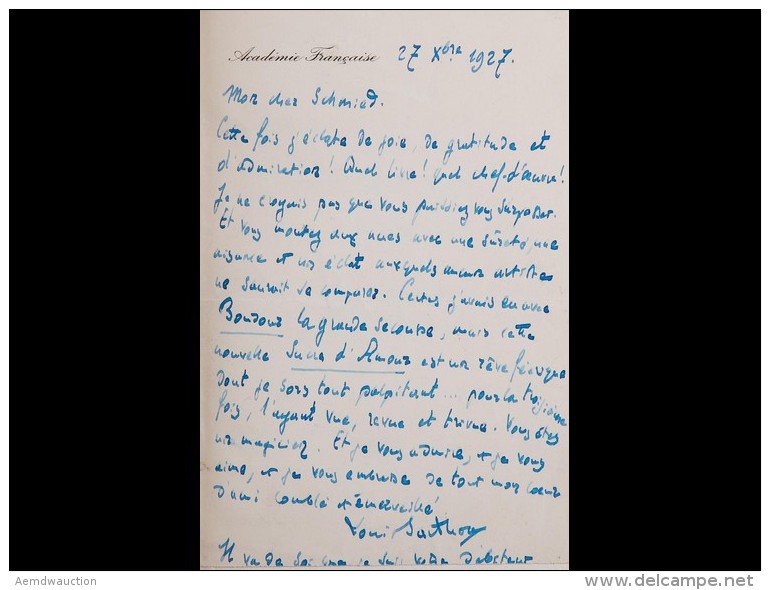 Académie Française 27 Xbre 1927.
Mon cher Schmied.
Cette fois j'éclate de joie, de gratitude et
d'admiration! Quel livre! quel chef-d'œuvre!
Je ne croyais pas que vous puissiez vous surpasser.
Et vous montez aux nues avec une sûreté, une
aisance et un éclat auxquels aucun artiste
ne saurait se comparer. Certes j'avais eu avec
la grande secousse, mais cette
nouvelle Sucre d'Amour est un rêve féerique
dont je sors tout palpitant ... pour la troisième
fois, l'ayant vue, revue et trivue. Vous êtes
un magicien. Et je vous admire, et je vous
aime, et je vous embrasse de tout mon cœur
d'ami comblé et émerveillé!
Louis Barthou
Il va de soi que je suis votre débiteur
Aemdwauction
www.delcampe.net